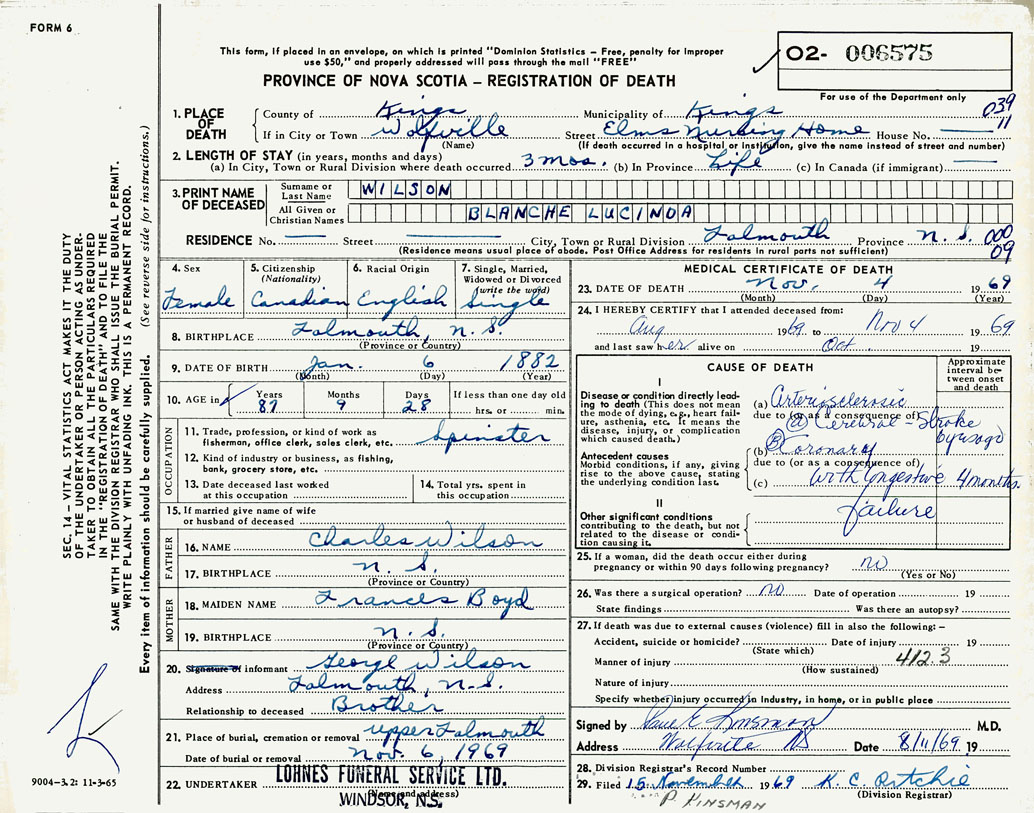 FORM 6
This form, if placed in an envelope, on which is printed "Dominion Statistics – Free, penalty for improper
use $50," and properly addressed will pass through the mail "FREE"
PROVINCE OF NOVA SCOTIA – REGISTRATION OF DEATH
02- 006575
For use of the Department only
039
11
1. PLACE OF DEATH
County of Kings Municipality of Kings
If in City or Town Wolfville Street Elms Nursing Home House No.
(Name) (If death occurred in a hospital or Institution, give the name instead of street and number)
2. LENGTH OF STAY (in years, months and days)
(a) In City, Town or Rural Division where death occurred 3 mos. (b) In Province Life (c) In Canada (if immigrant)
3. PRINT NAME OF DECEASED
Surname or Last Name WILSON
All Given or Christian Names BLANCHE LUCINDA
RESIDENCE No. Street City, Town or Rural Division Falmouth Province N. S. 000
09
(Residence means usual place of abode. Post Office Address for residents in rural parts not sufficient)
4. Sex
Female
5. Citizenship
(Nationality)
Canadian
6. Racial Origin
English
7. Single, Married,
Widowed or Divorced
(write the word)
Single
8. BIRTHPLACE Falmouth, N. S.
(Province or Country)
9. DATE OF BIRTH Jan. 6 1882
(Month) (Day) (Year)
10. AGE in
Years Months Days If less than one day old
87 9 28 hrs. or min.
OCCUPATION
11. Trade, profession, or kind of work as
fisherman, office clerk, sales clerk, etc. Spinster
12. Kind of industry or business, as fishing,
bank, grocery store, etc.
13. Date deceased last worked
at this occupation
14. Total yrs. spent in
this occupation
15. If married give name of wife
or husband of deceased
FATHER
16. NAME Charles Wilson
17. BIRTHPLACE N. S.
(Province or Country)
MOTHER
18. MAIDEN NAME Frances Boyd
19. BIRTHPLACE N. S.
(Province or Country)
20. Signature of informant George Wilson
Address Falmouth, N.S.
Relationship to deceased Brother
21. Place of burial, cremation or removal Upper Falmouth
Date of burial or removal Nov. 6, 1969
22. UNDERTAKER LOHNES FUNERAL SERVICE LTD.
(Name and address)
WINDSOR, N.S.
MEDICAL CERTIFICATE OF DEATH
23. DATE OF DEATH Nov. 4 1969
(Month) (Day) (Year)
24. I HEREBY CERTIFY that I attended deceased from:
Aug 1969 to Nov 4 1969
and last saw her alive on Oct 19
CAUSE OF DEATH
Approximate interval between onset and death
I
Disease or condition directly leading to death (This does not mean the mode of dying, e.g., heart failure, asthenia, etc. It means the disease, injury, or complication which caused death.)
(a) Arteriosclerosic
due to (or as a consequence of)
(a) Cerebral – Stroke
6 yrs ago
Antecedent causes
Morbid conditions, if any, giving rise to the above cause, stating the underlying condition last.
(b) (B) Coronary
due to (or as a consequence of)
(c) with congestive 4 months
failure
II
Other significant conditions
contributing to the death, but not related to the disease or condition causing it.
25. If a woman, did the death occur either during
pregnancy or within 90 days following pregnancy? no
(Yes or No)
26. Was there a surgical operation? no Date of operation 19
State findings Was there an autopsy?
27. If death was due to external causes (violence) fill in also the following: –
Accident, suicide or homicide? Date of injury 19
(State which)
Manner of injury 412.3
(How sustained)
Nature of injury
Specify whether injury occurred in Industry, in home, or in public place
Signed by Paul E Kinsman M.D.
Address Wolfville NS Date 8/11/69 19
28. Division Registrar's Record Number
29. Filed 15 November 1969 K. C. Ritchie
(Division Registrar)
P. KINSMAN
SEC. 14 – VITAL STATISTICS ACT MAKES IT THE DUTY
OF THE UNDERTAKER OR PERSON ACTING AS UNDER-
TAKER TO OBTAIN ALL THE PARTICULARS REQUIRED
IN THE "REGISTRATION OF DEATH" AND TO FILE THE
SAME WITH THE DIVISION REGISTRAR WHO SHALL ISSUE THE BURIAL PERMIT.
WRITE PLAINLY WITH UNFADING INK. THIS IS A PERMANENT RECORD.
Every item of information should be carefully supplied. (See reverse side for instructions.)
9004-3.2: 11-3-65